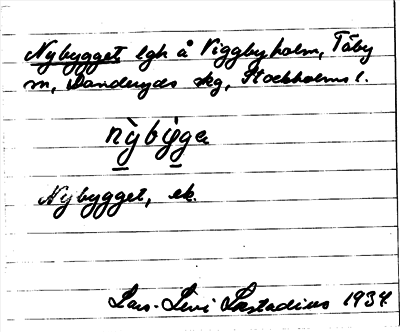 Nybygget lgh å Viggbyholm, Täby
sn, Danderyds skg, Stockholms l.
nỳby̆gga
Nybygget, ek.
Lars-Levi Læstadius 1934